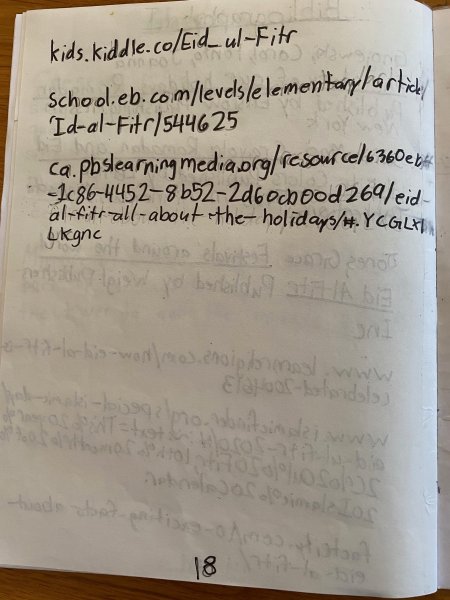 kids.kiddle.co/Eid_ul-Fitr
school.eb.com/levels/elementary/article/
Id-al-Fitr/544625
ca.pbslearningmedia.org/resource/6360eb#
-1c86-4452-8b52-2d60cb00d269/eid-
al-fitr-all-about-the-holidays/#.YCGLXl
UKgnc
18